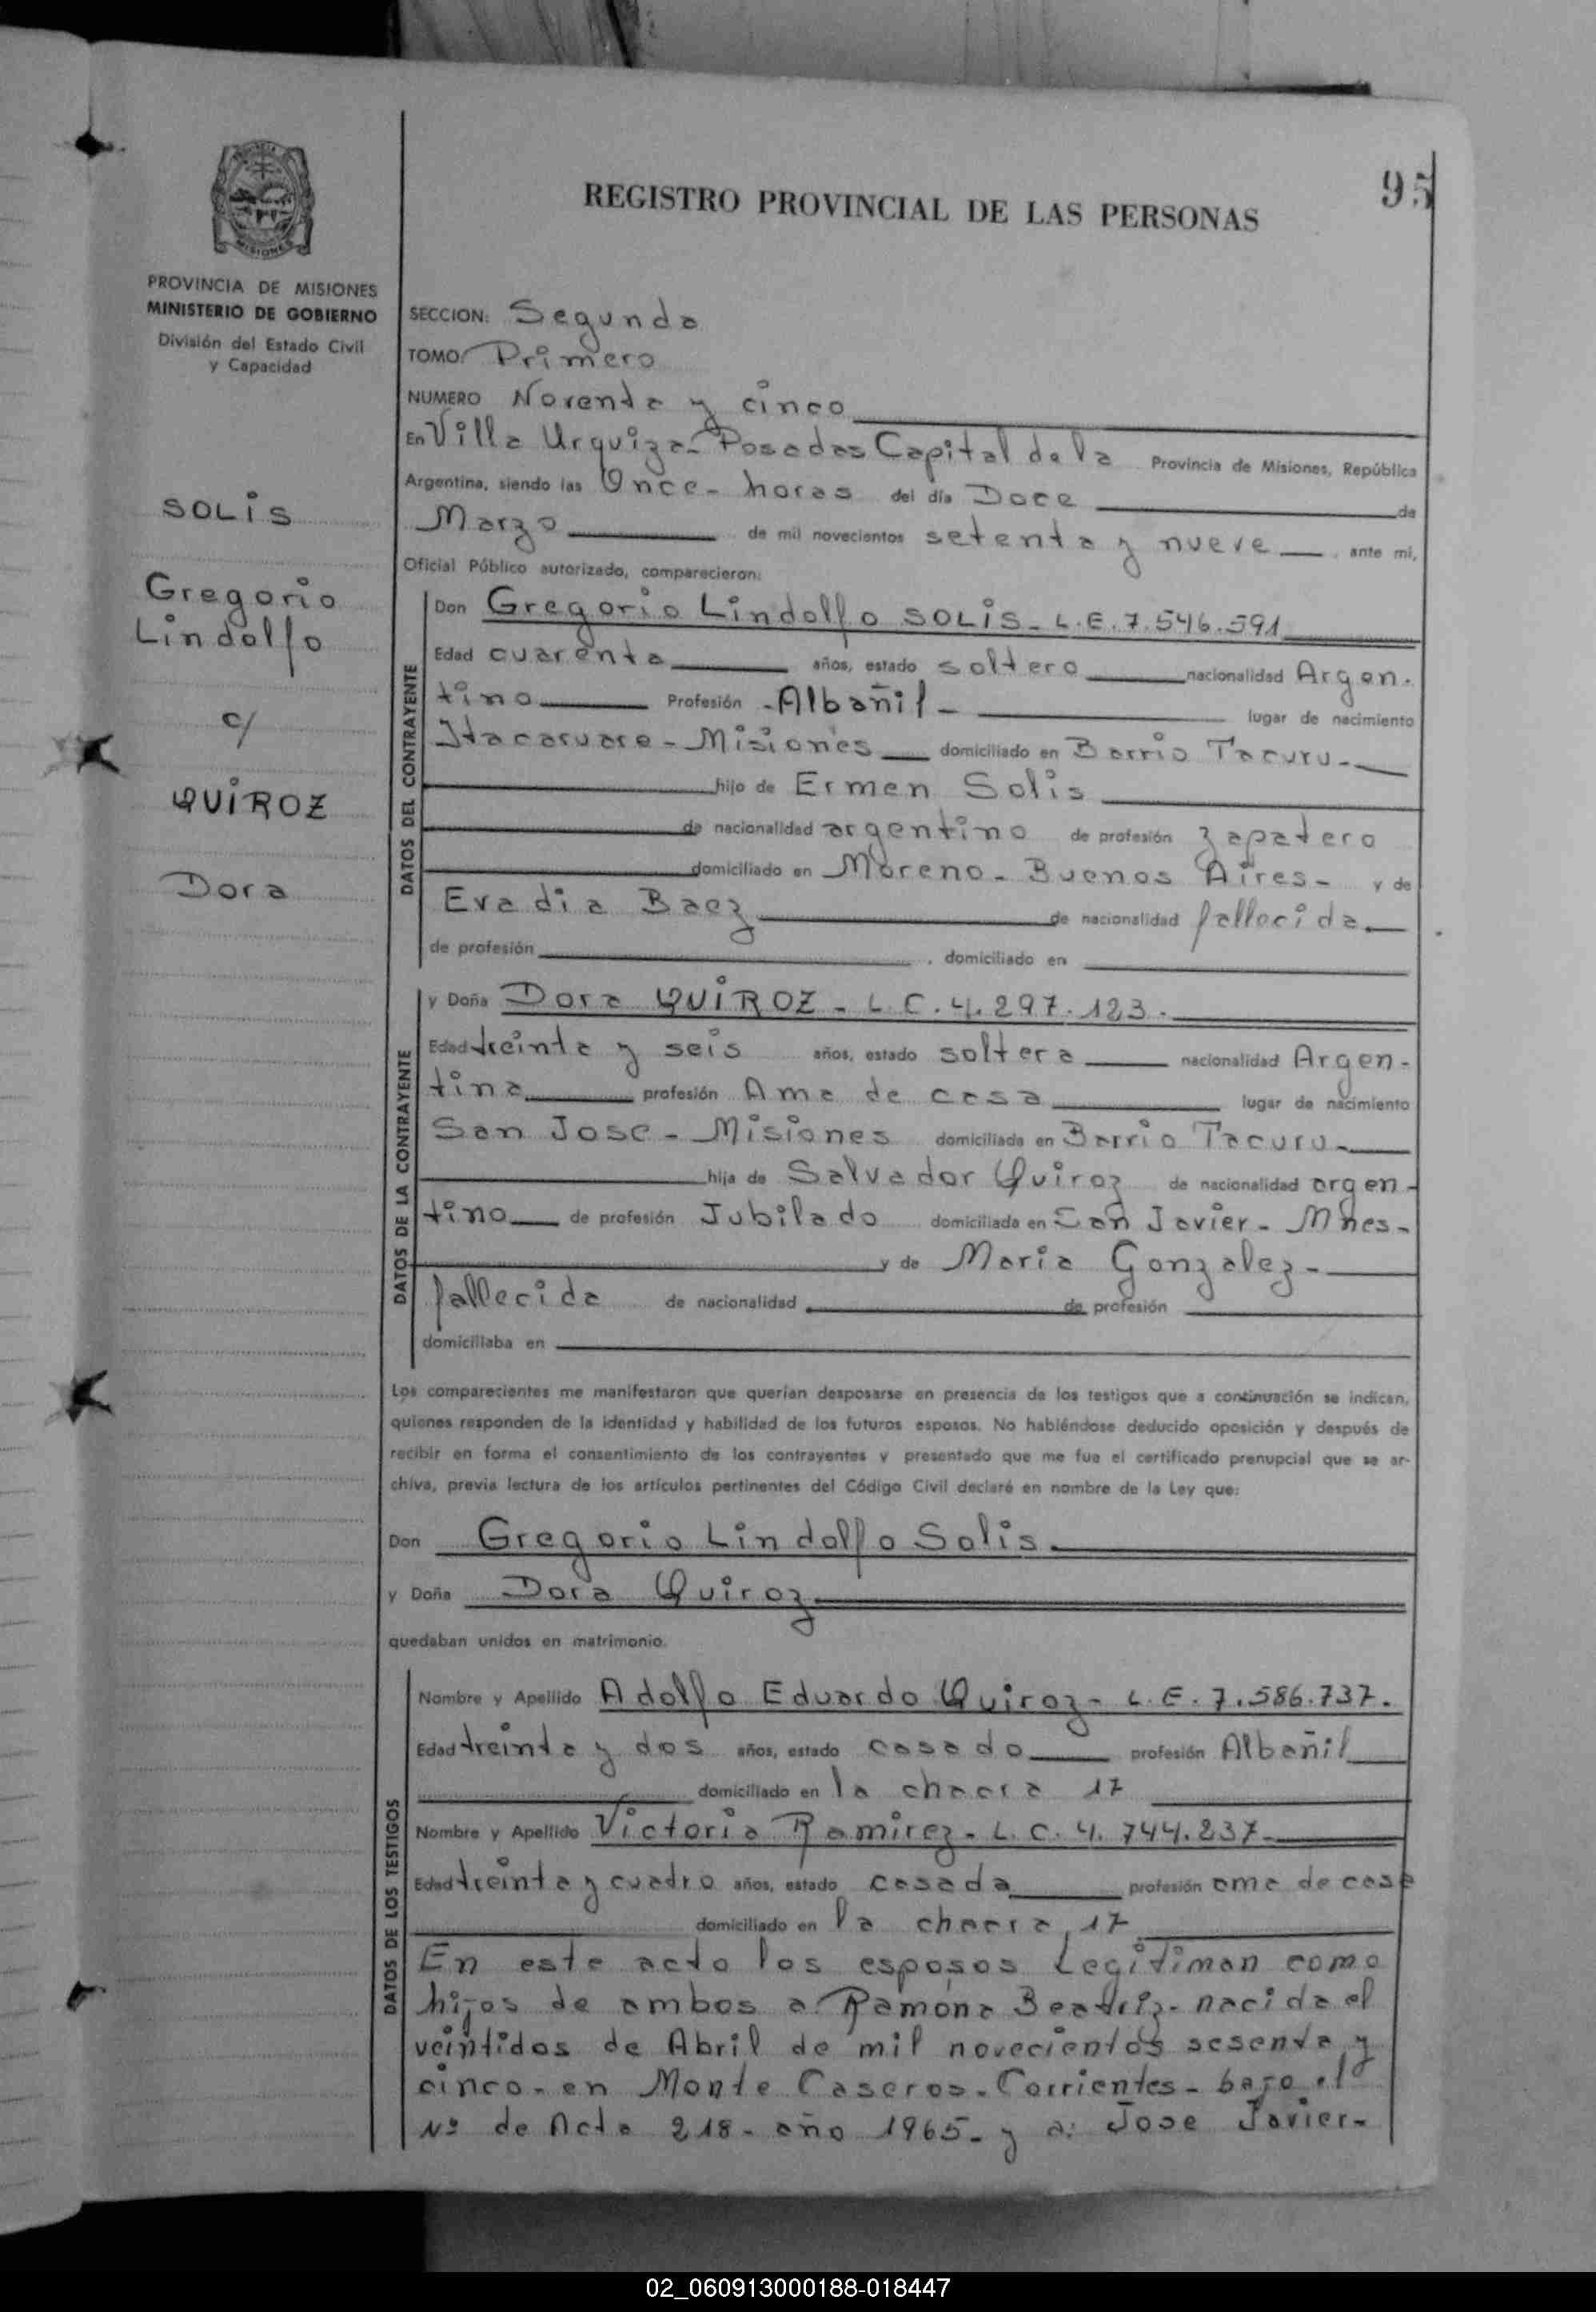 95
REGISTRO PROVINCIAL DE LAS PERSONAS
MISIONES
PROVINCIA DE MISIONES
MINISTERIO DE GOBIERNO
División del Estado Civil
y Capacidad
SOLIS
Gregorio
Lindolfo
c/
QUIROZ
Dora
SECCION: Segunda
TOMO: Primero
NUMERO Noventa y cinco
En Villa Urquiza - Posadas Capital de la Provincia de Misiones, República
Argentina, siendo las Once - horas del día Doce de
Marzo de mil novecientos setenta y nueve ante mí,
Oficial Público autorizado, comparecieron:
DATOS DEL CONTRAYENTE
Don Gregorio Lindolfo SOLIS - L.E. 7.546.591
Edad cuarenta años, estado soltero nacionalidad Argen-
tino Profesión - Albañil - lugar de nacimiento
Itacaruare - Misiones domiciliado en Barrio Tacuru -
hijo de Ermen Solis
de nacionalidad argentino de profesión zapatero
domiciliado en Moreno - Buenos Aires - y de
Evadia Baez de nacionalidad fallecida
de profesión , domiciliado en
DATOS DE LA CONTRAYENTE
y Doña Dora QUIROZ - L.C. 4.297.123.
Edad treinta y seis años, estado soltera nacionalidad Argen-
tina profesión Ama de casa lugar de nacimiento
San Jose - Misiones domiciliada en Barrio Tacuru -
hija de Salvador Quiroz de nacionalidad argen-
tino de profesión Jubilado domiciliada en San Javier - Mnes -
y de Maria Gonzalez -
fallecida de nacionalidad de profesión
domiciliaba en
Los comparecientes me manifestaron que querían desposarse en presencia de los testigos que a continuación se indican,
quienes responden de la identidad y habilidad de los futuros esposos. No habiéndose deducido oposición y después de
recibir en forma el consentimiento de los contrayentes y presentado que me fue el certificado prenupcial que se ar-
chiva, previa lectura de los artículos pertinentes del Código Civil declaré en nombre de la Ley que:
Don Gregorio Lindolfo Solis
y Doña Dora Quiroz
quedaban unidos en matrimonio.
DATOS DE LOS TESTIGOS
Nombre y Apellido Adolfo Eduardo Quiroz - L.E. 7.586.737.
Edad treinta y dos años, estado casado profesión Albañil
domiciliado en la chacra 17
Nombre y Apellido Victoria Ramirez - L.C. 4.744.237
Edad treinta y cuatro años, estado casada profesión ama de casa
domiciliado en la chacra 17
En este acto los esposos Legitiman como
hijos de ambos a: Ramona Beatriz - nacida el
veintidos de Abril de mil novecientos sesenta y
cinco - en Monte Caseros - Corrientes - bajo el
Nº de Acta 218 - año 1965 - y a: Jose Javier -
02_060913000188-018447